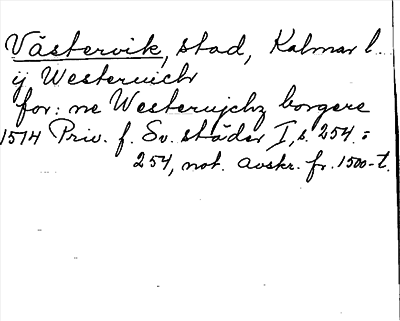 Västervik, stad, Kalmar l.
ij Westeruichr
for: ne Westerujchz borgere
1514 Priv. f. Sv. städer I, s. 254 =
254, not. avskr. fr. 1500-t.